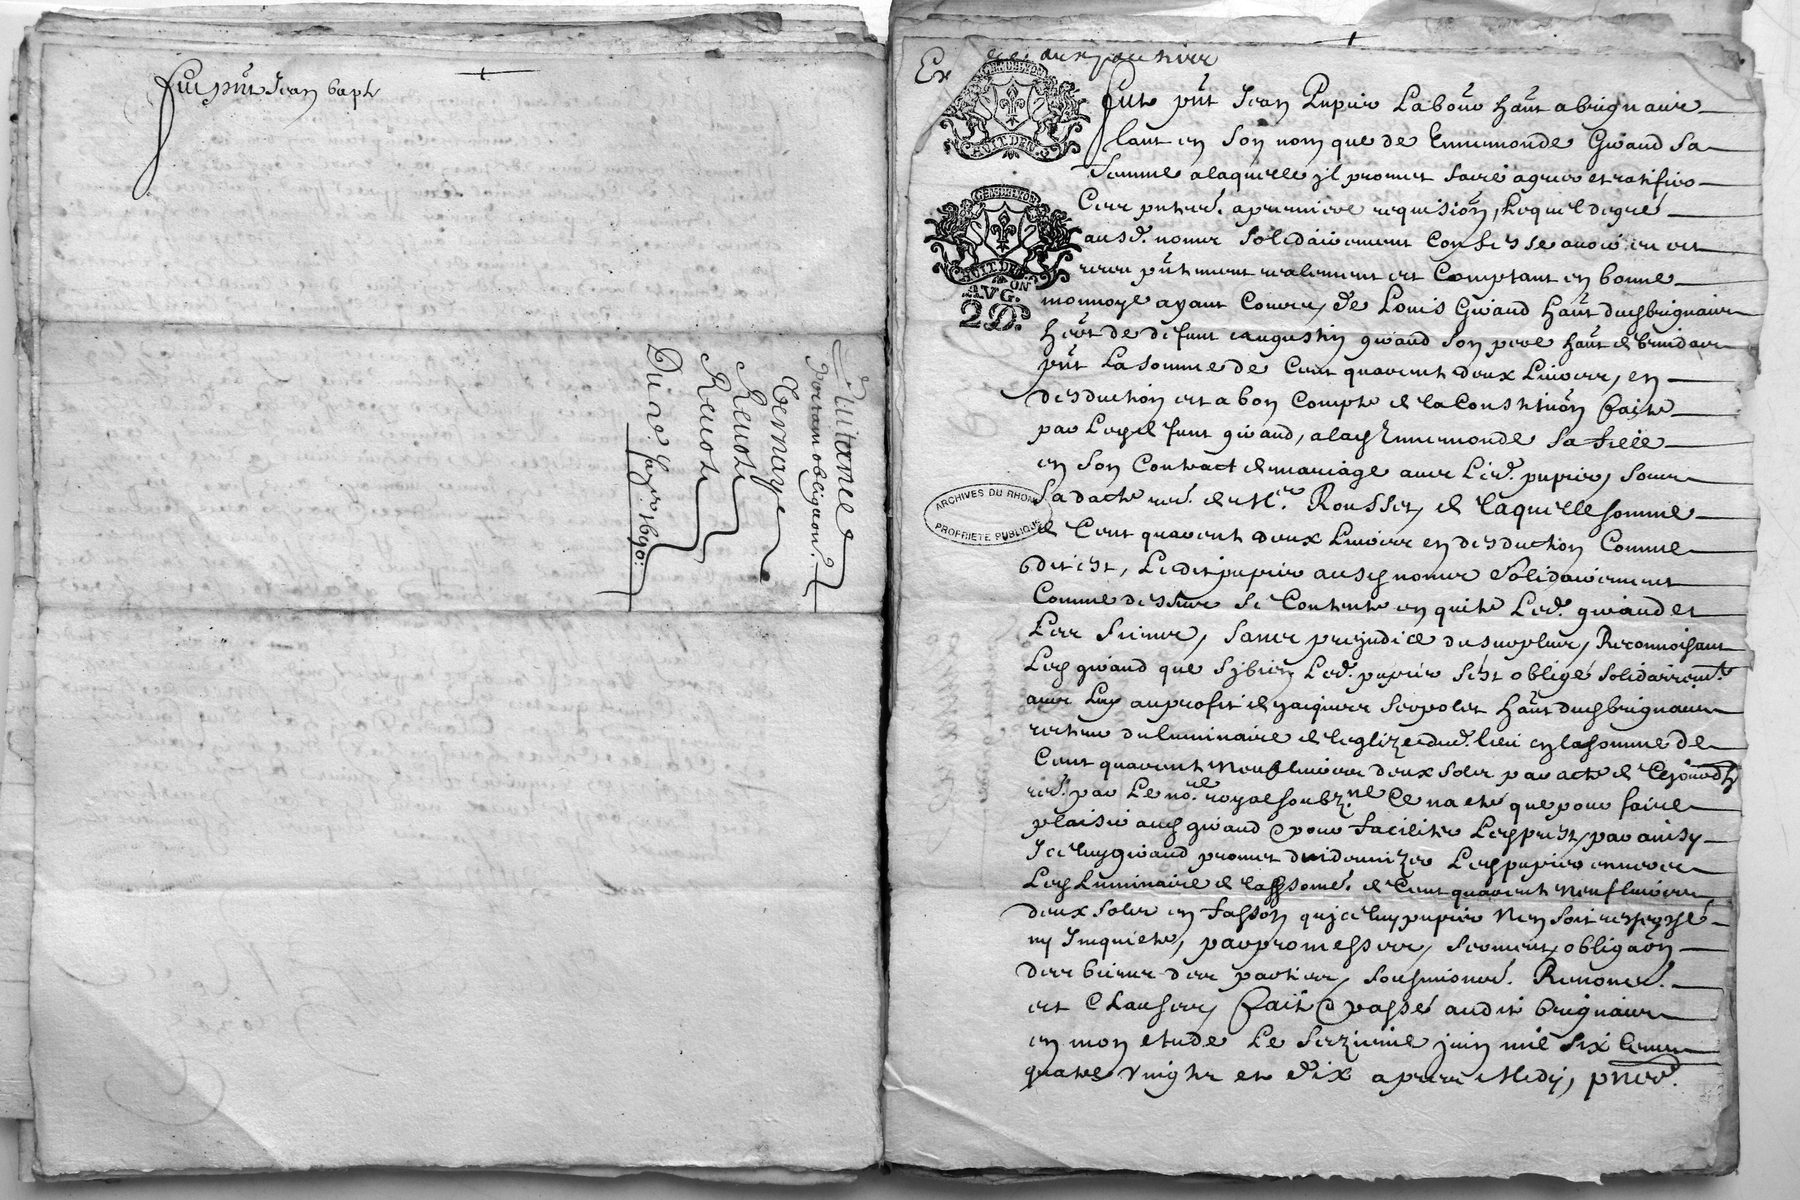 fut pnt Jean bapte
Quitance
portant obligaon.
Ternaye
Reuoste
Reuoste
Du 16e. Juin 1690:
Ex
GEN DE LYON
HUIT DEN.
GEN DE LYON
HUIT DEN.
ON
AVG.
2 D.
ARCHIVES DU RHONE
PROPRIETE PUBLIQUE
fut pnt Jean Pupier Labour hant a brignaire
tant en son nom que de Ennemonde Giraud sa
femme a laquelle jl promet faire agreer et ratiffier
Ces pntes. a premiere requision, Lequel de gré
ausd. noms solidairement Confesse avoir eu et
receu pntement realement et Comptant en bonne
monnoye ayant Cours, de Louis Giraud hant dud brignaire
hert de defunt augustin giraud son pere hant de brindar
pnt La somme de Cent quarente deux Livres, en
desduction et a bon Compte de la Constituon faite
par Led defunt giraud, a lad Ennemonde sa fille
en son Contract de mariage avec Led. pupier, sous
sa datte rec. de Me. Rousset, de laquelle somme
de Cent quarente deux Livres en desduction Comme
dit est, Ledit pupier ausd noms solidairement
Comme dessus se Contente en quite Led. giraud et
Les siens, sans prejudice du surplus, Reconnoissant
Led giraud que sybien Led. pupier s'est obligé solidairemt.
avec Luy au profit de Jacques Serpolet hant dud brignaire
recteur du luminaire de leglize dud. lieu en la somme de
Cent quarente neuf livres deux sols par acte de Cejourdhuy
rec. par Le nore. royal soubz.né Ce na eté que pour faire
plaisir aud giraud & pour faciliter Led prest, par ainsy
Iceluy giraud promet dindemnizer Led pupier envers
Led Luminaire de lad some. de Cent quarente neuf livres
deux sols en fasson que iceluy pupier nen soit recherché
ny Inquiete, par promesses, serment, obligaon
des biens des parties, sousmions. Renons.
et Clauses, fait & passé audit brignaire
en mon etude Le seizieme juin mil six Cens
quatre vingts et dix apres Midy, pnts.